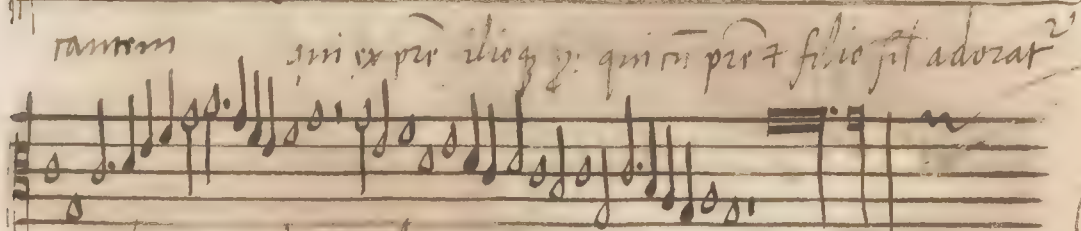 tantem qui ex pr̄e filioq; p: qui cū pr̄e ⁊ filio sil̄ adorat²